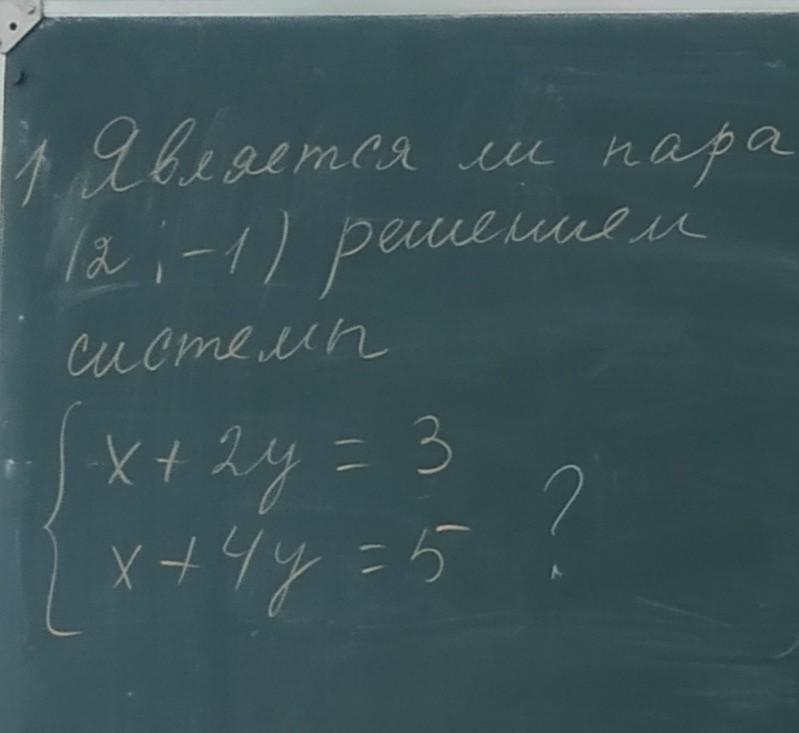 1 Является ли пара
(2 ; -1) решением
системы
x + 2y = 3
x + 4y = 5 ?